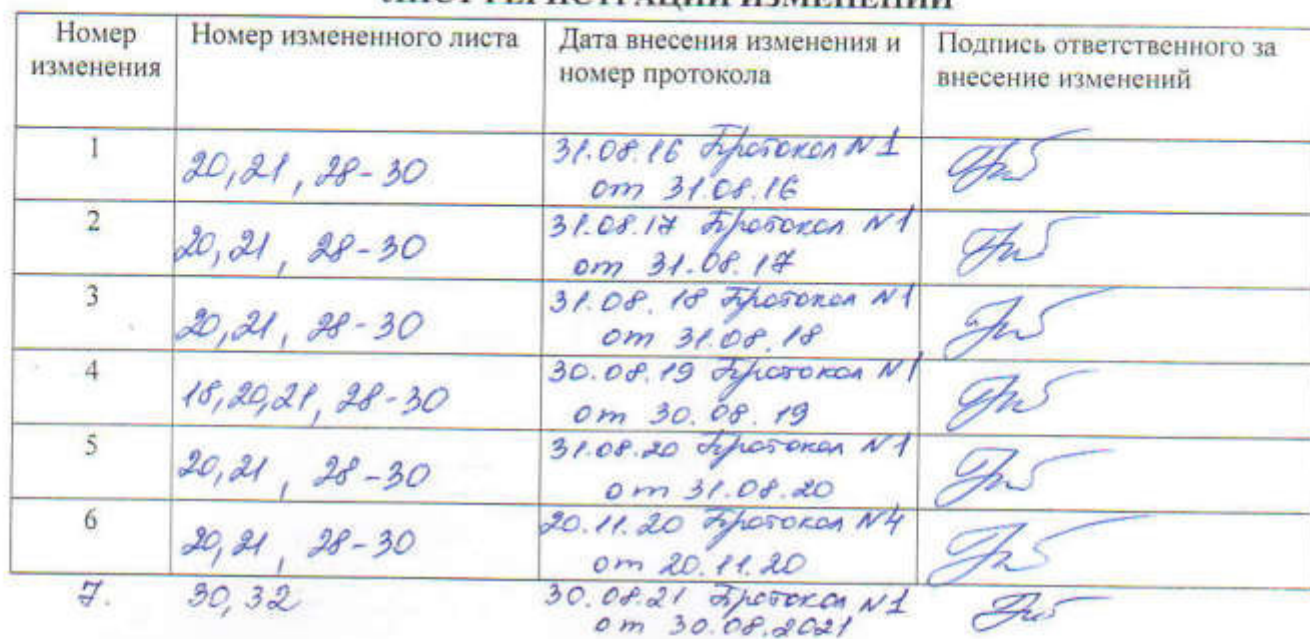 ЛИСТ РЕГИСТРАЦИИ ИЗМЕНЕНИЙ
Номер изменения Номер измененного листа Дата внесения изменения и номер протокола Подпись ответственного за внесение изменений
1 20,21, 28-30 31.08.16 Протокол N1
от 31.08.16
2 20,21, 28-30 31.08.17 Протокол N1
от 31.08.17
3 20,21, 28-30 31.08.18 Протокол N1
от 31.08.18
4 18,20,21, 28-30 30.08.19 Протокол N1
от 30.08.19
5 20,21, 28-30 31.08.20 Протокол N1
от 31.08.20
6 20,21, 28-30 20.11.20 Протокол N4
от 20.11.20
7. 30,32 30.08.21 Протокол N1
от 30.08.2021